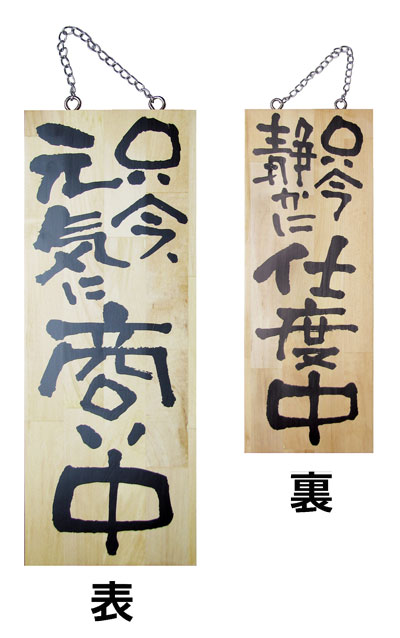 只今、
元気に
商い中
表
只今
静かに
仕度中
裏